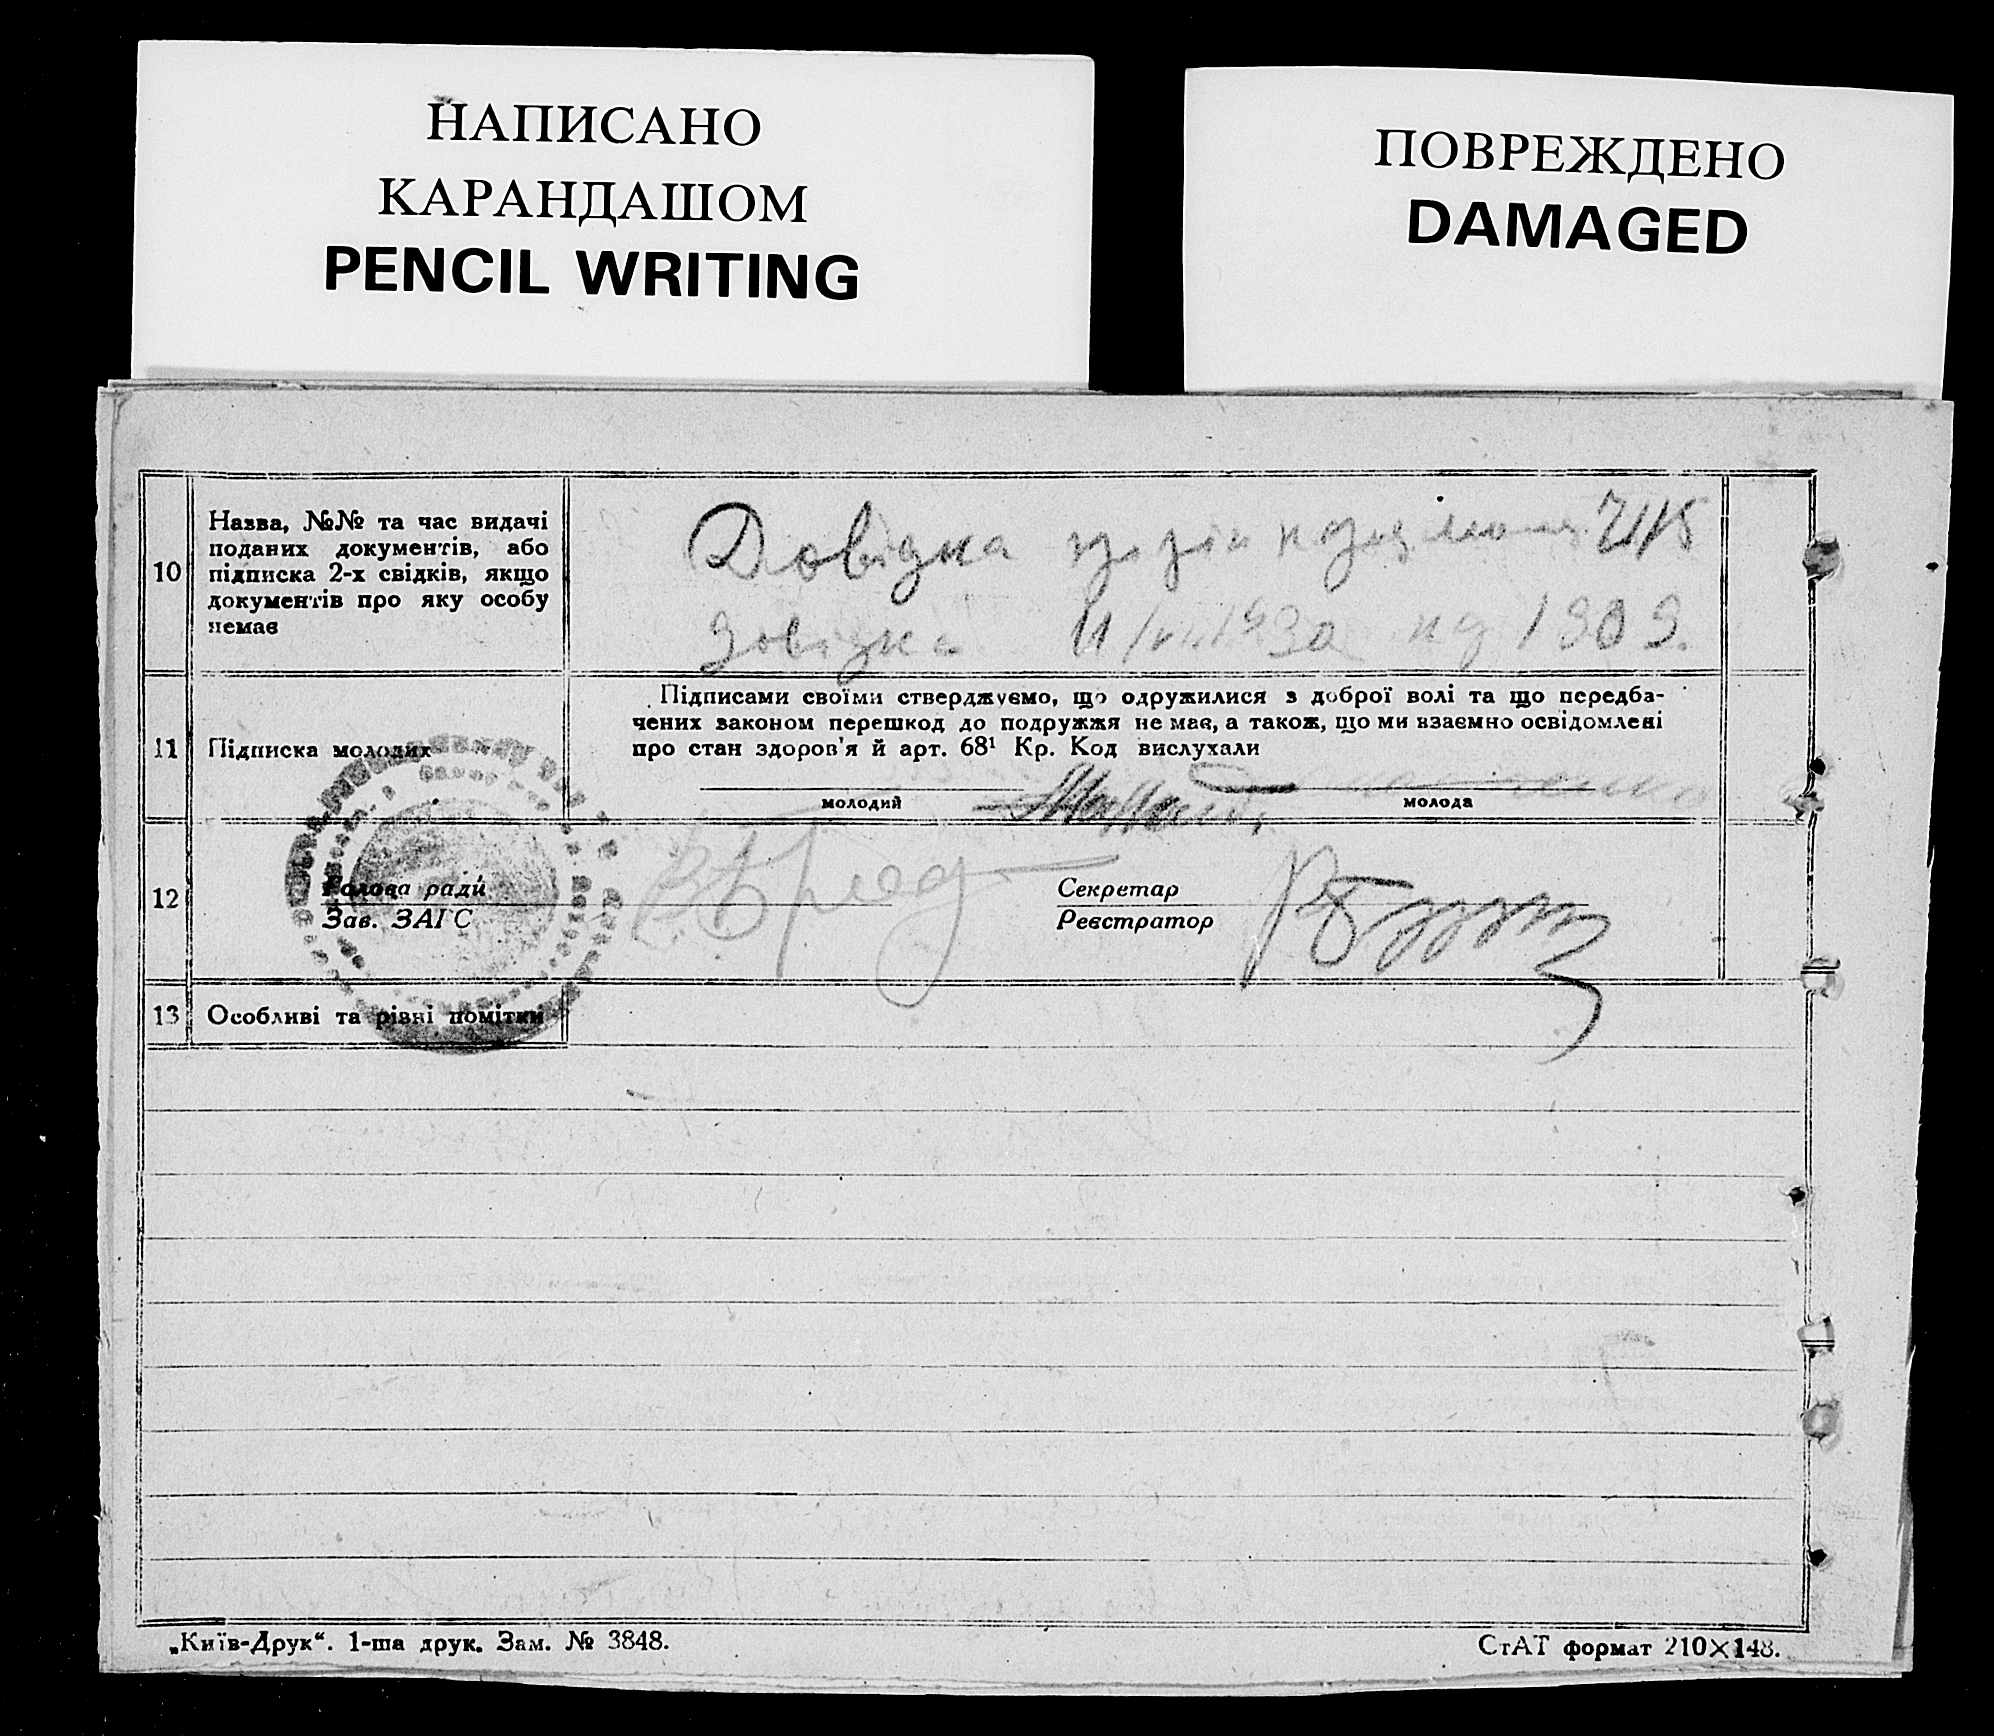 НАПИСАНО
КАРАНДАШОМ
PENCIL WRITING
ПОВРЕЖДЕНО
DAMAGED
10
Назва, №№ та час видачі
поданих документів, або
підписка 2-х свідків, якщо
документів про яку особу
немає
Довідка
довідка 1909.
11
Підписка молодих
Підписами своїми стверджуємо, що одружилися з доброї волі та що передба-
чених законом перешкод до подружжя не має, а також, що ми взаємно освідомлені
про стан здоров'я й арт. 68¹ Кр. Код вислухали
молодий
молода
12
Голова ради
Зав. ЗАГС
Секретар
Реєстратор
13
Особливі та рівні помітки
„Київ-Друк“. 1-ша друк. Зам. № 3848.
СтАТ формат 210×148.